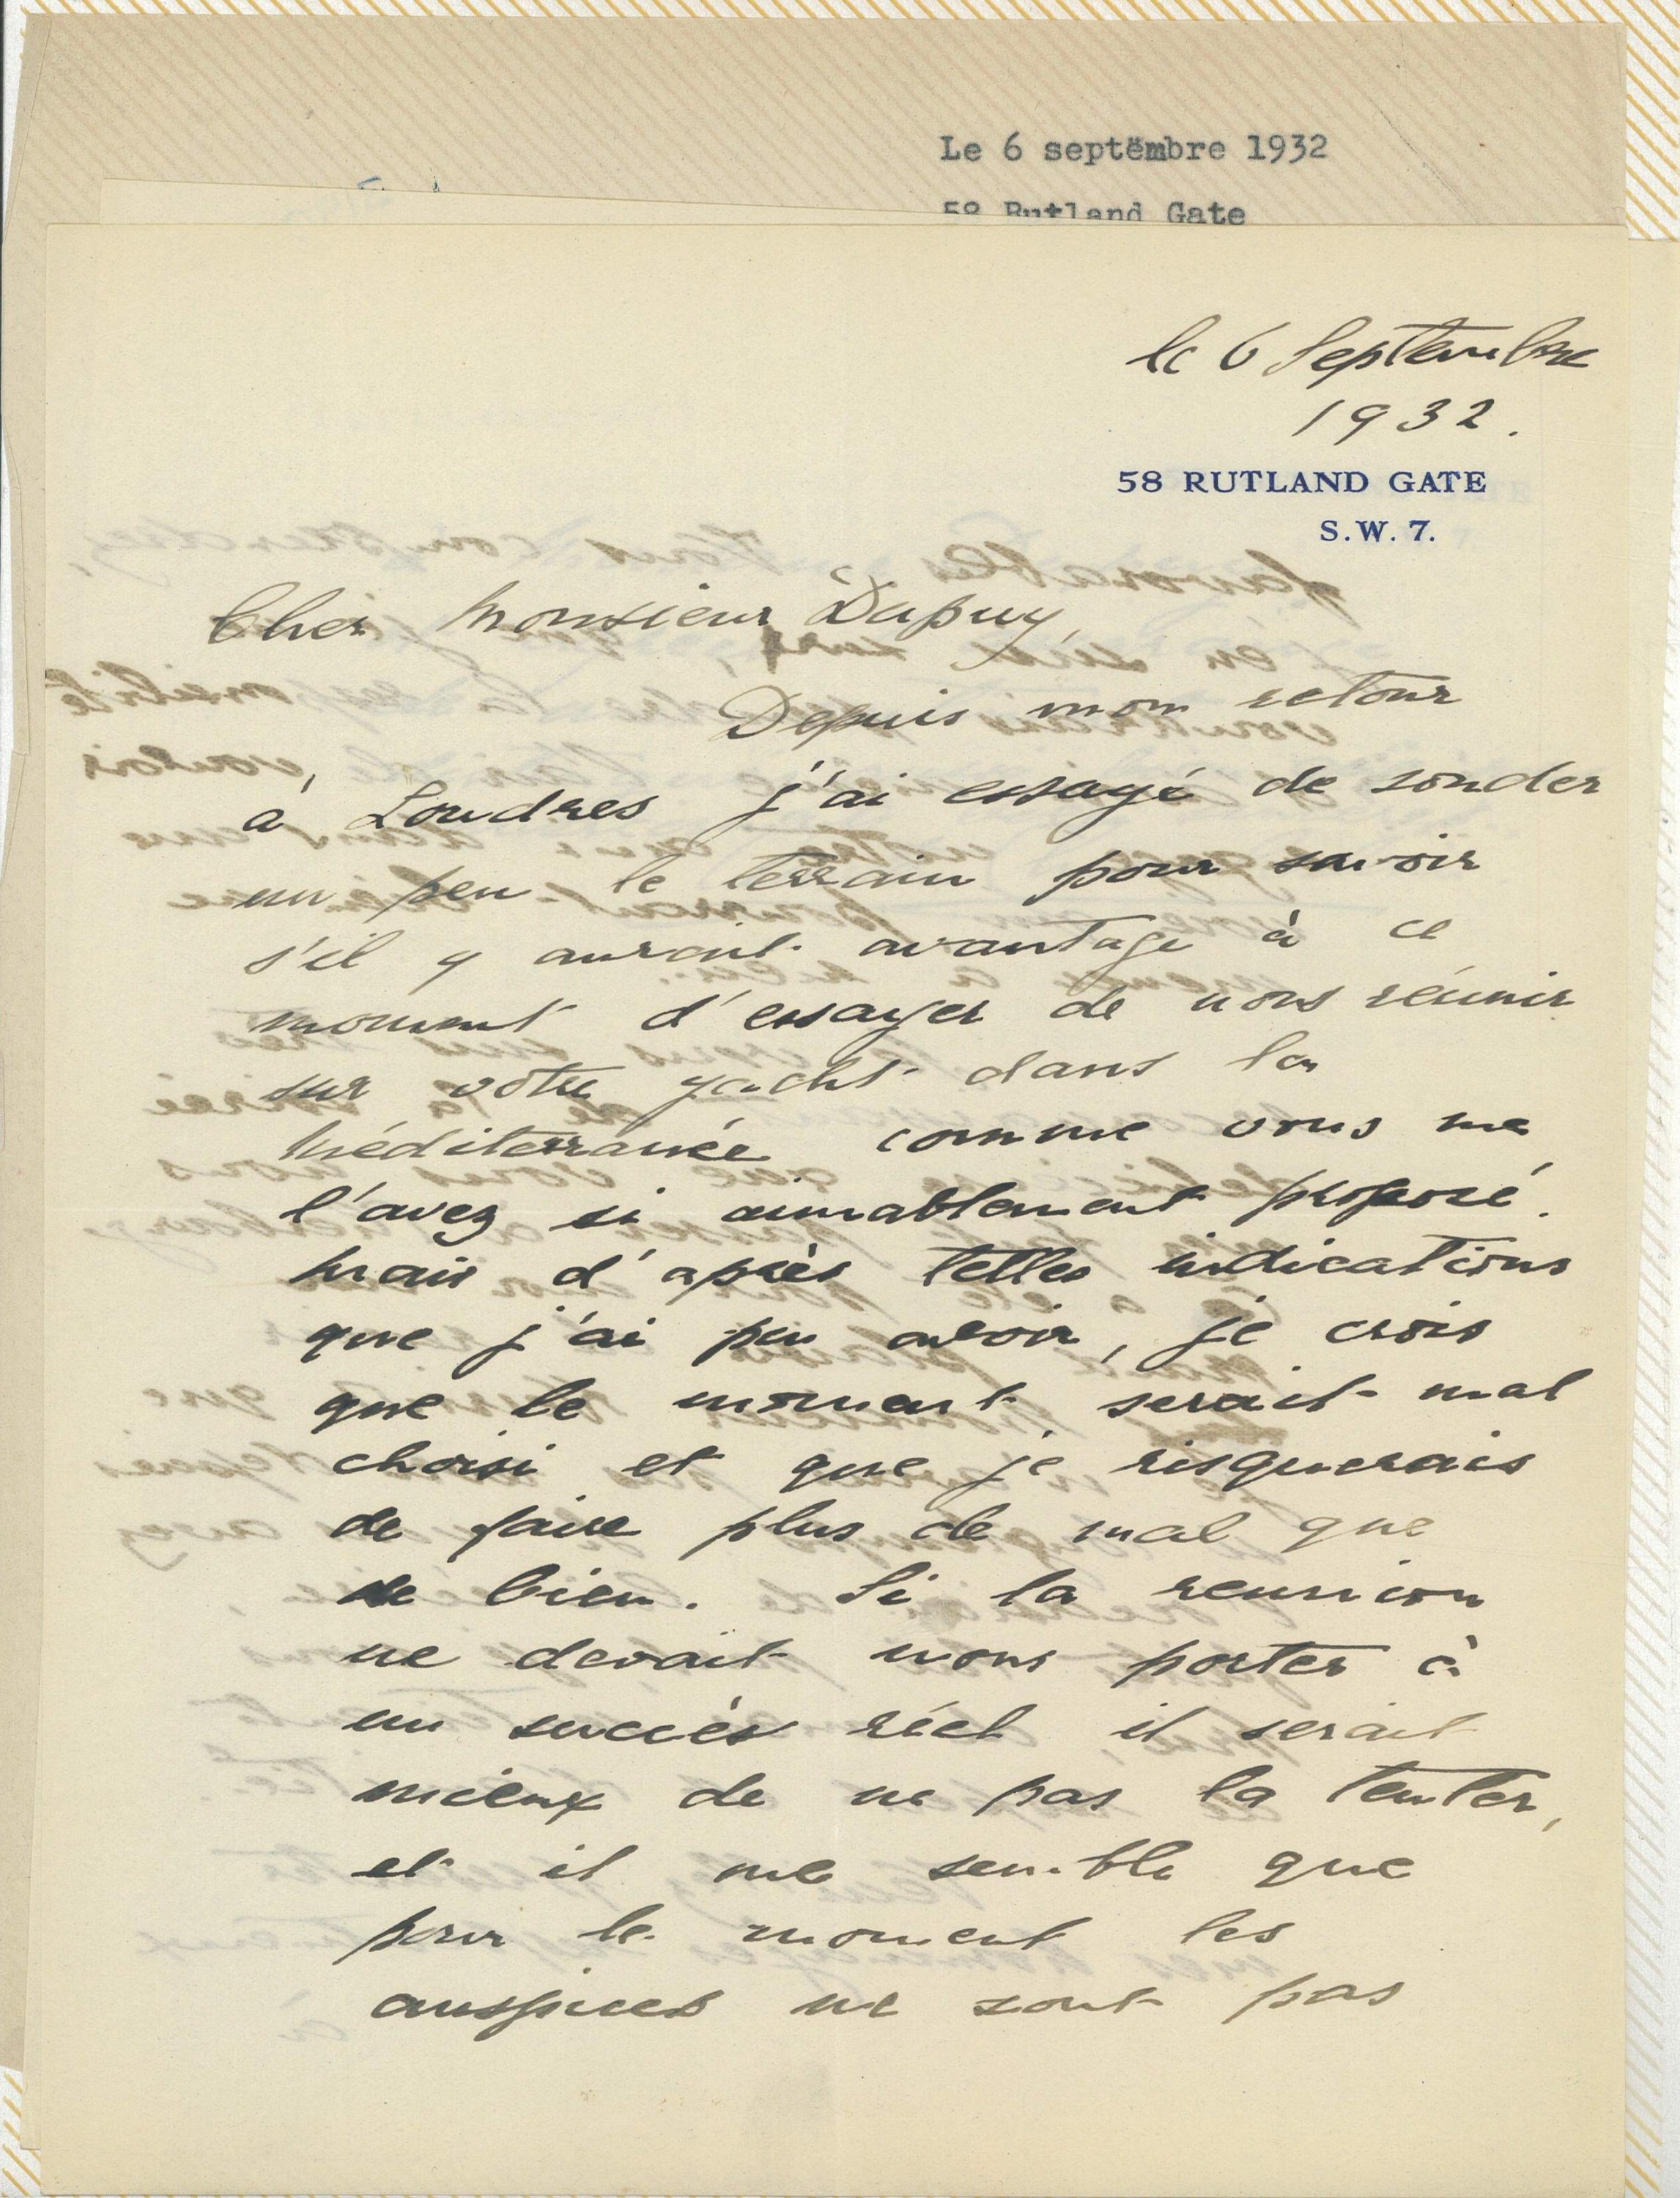 Le 6 septembre 1932
58 Rutland Gate
le 6 Septembre
1932.
58 RUTLAND GATE
S.W. 7.
Cher Monsieur Dupuy,
Depuis mon retour
à Londres j'ai essayé de sonder
un peu le terrain pour savoir
s'il y aurait avantage à ce
moment d'essayer de nous réunir
sur votre yacht dans la
Méditerranée comme vous me
l'avez si aimablement proposé.
Mais d'après telles indications
que j'ai pu avoir, je crois
que le moment serait mal
choisi et que je risquerais
de faire plus de mal que
de bien. Si la reunion
ne devait nous porter à
un succès réel il serait
mieux de ne pas la tenter,
et il me semble que
pour le moment les
auspices ne sont pas